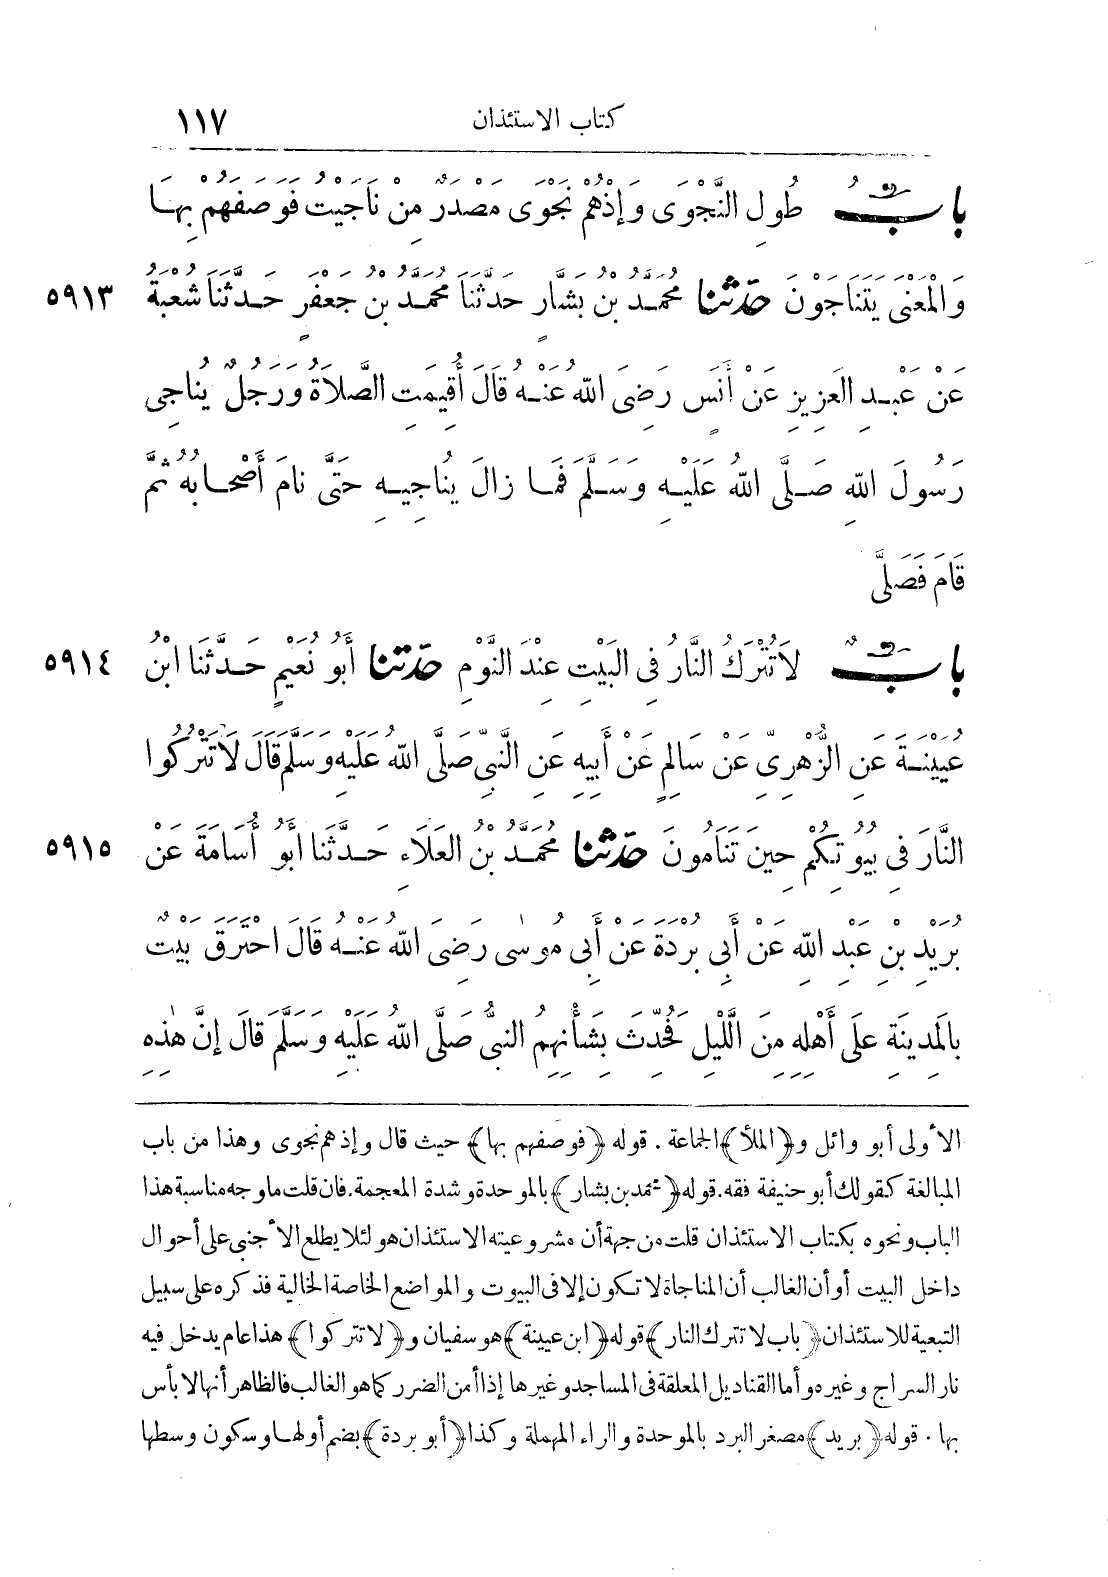 كتاب الاستئذان ١١٧
بابٌ طُولِ النَّجْوَى وَإِذْهُمْ نَجْوَى مَصْدَرٌ مِنْ نَاجَيْتُ فَوَصَفَهُمْ بِهَا
وَالْمَعْنَى يَتَنَاجَوْنَ حَدَّثَنَا مُحَمَّدُ بْنُ بَشَّارٍ حَدَّثَنَا مُحَمَّدُ بْنُ جَعْفَرٍ حَدَّثَنَا شُعْبَةُ ٥٩١٣
عَنْ عَبْدِ العَزِيزِ عَنْ أَنَسٍ رَضِىَ اللهُ عَنْهُ قَالَ أُقِيمَتِ الصَّلَاةُ وَرَجُلٌ يُنَاجِى
رَسُولَ اللهِ صَلَّى اللهُ عَلَيْهِ وَسَلَّمَ فَمَا زَالَ يُنَاجِيهِ حَتَّى نَامَ أَصْحَابُهُ ثُمَّ
قَامَ فَصَلَّى
بابٌ لَا تُتْرَكُ النَّارُ فِى البَيْتِ عِنْدَ النَّوْمِ حَدَّثَنَا أَبُو نُعَيْمٍ حَدَّثَنَا ابْنُ ٥٩١٤
عُيَيْنَةَ عَنِ الزُّهْرِىِّ عَنْ سَالِمٍ عَنْ أَبِيهِ عَنِ النَّبِىِّ صَلَّى اللهُ عَلَيْهِ وَسَلَّمَ قَالَ لَا تَتْرُكُوا
النَّارَ فِى بُيُوتِكُمْ حِينَ تَنَامُونَ حَدَّثَنَا مُحَمَّدُ بْنُ العَلَاءِ حَدَّثَنَا أَبُو أُسَامَةَ عَنْ ٥٩١٥
بُرَيْدِ بْنِ عَبْدِ اللهِ عَنْ أَبِى بُرْدَةَ عَنْ أَبِى مُوسٰى رَضِىَ اللهُ عَنْهُ قَالَ احْتَرَقَ بَيْتٌ
بِالْمَدِينَةِ عَلَى أَهْلِهِ مِنَ اللَّيْلِ فَحُدِّثَ بِشَأْنِهِمُ النبىُّ صَلَّى اللهُ عَلَيْهِ وَسَلَّمَ قَالَ إِنَّ هٰذِهِ
الأولى أبو وائل و﴿الملأ﴾ الجماعة . قوله ﴿فوصفهم بها﴾ حيث قال وإذ هم نجوى وهذا من باب
المبالغة كقولك أبو حنيفة فقه. قوله ﴿محمد بن بشار﴾ بالموحدة وشدة المعجمة. فان قلت ما وجه مناسبة هذا
الباب ونحوه بكتاب الاستئذان قلت من جهة أن مشروعيته الاستئذان هو لئلا يطلع الأجنبى على أحوال
داخل البيت أو أن الغالب أن المناجاة لا تكون إلا فى البيوت والمواضع الخاصة الخالية فذكره على سبيل
التبعية للاستئذان ﴿باب لا تترك النار﴾ قوله ﴿ابن عيينة﴾ هو سفيان و﴿لا تتركوا﴾ هذا عام يدخل فيه
نار السراج وغيره وأما القناديل المعلقة فى المساجد وغيرها إذا أمن الضرر كما هو الغالب فالظاهر أنها لا بأس
بها . قوله ﴿بريد﴾ مصغر البرد بالموحدة والراء المهملة وكذا ﴿أبو بردة﴾ بضم أولها وسكون وسطها